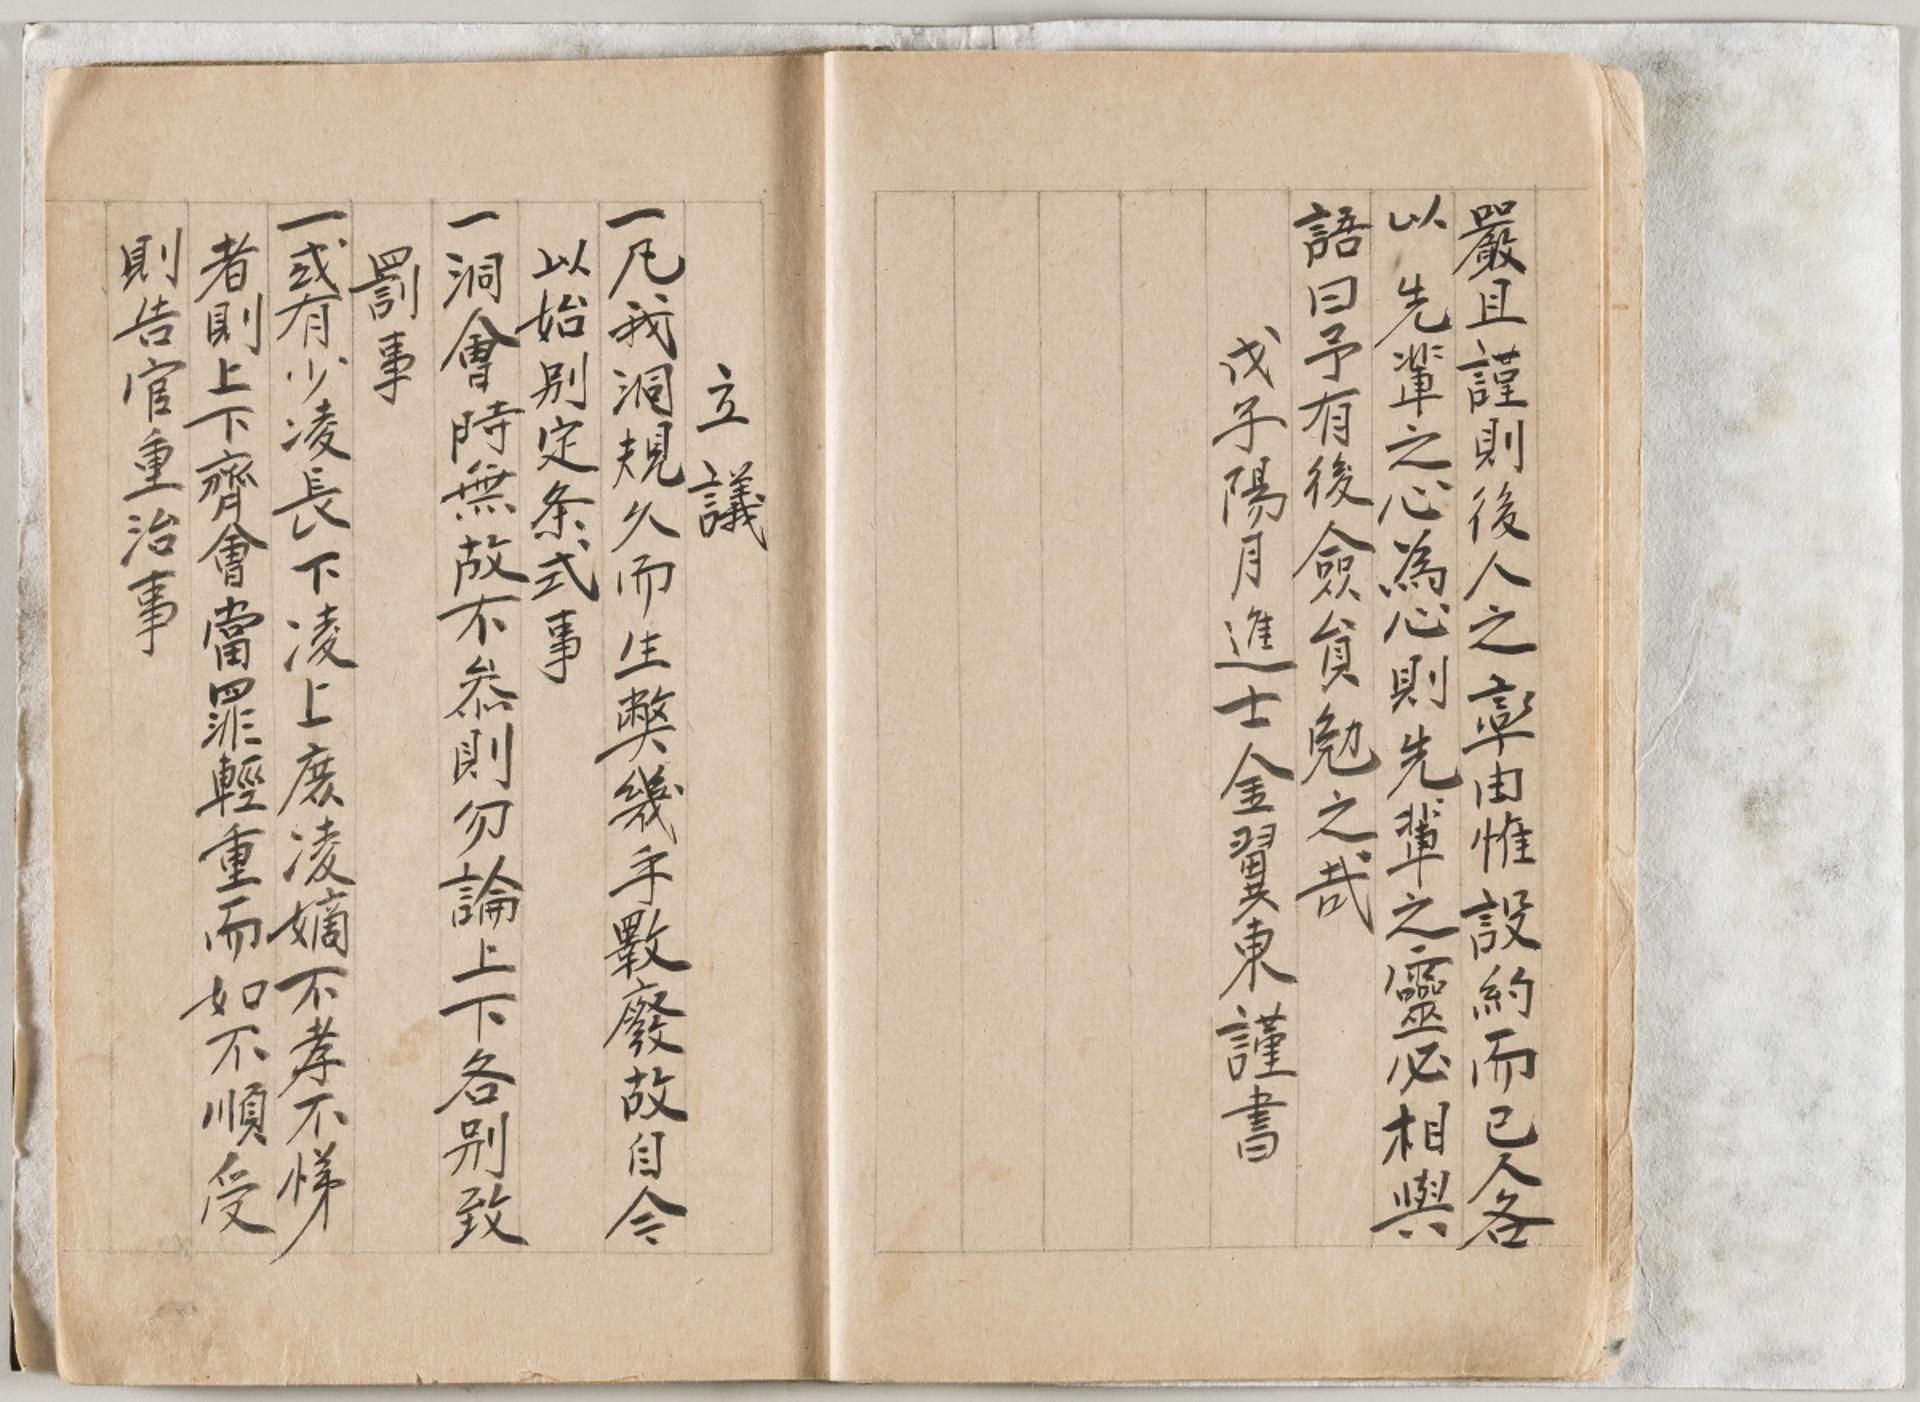 嚴且謹則後人之率由惟設約而已人各
以 先輩之心為心則先輩之靈必相與
語曰予有後僉員勉之哉
戊子陽月進士金翼東謹書
立議
一凡我洞規久而生弊幾乎斁廢故自今
以始別定条式事
一洞會時無故不叅則勿論上下各別致
罰事
一或有少凌長下凌上庶凌嫡不孝不悌
者則上下齊會當罪輕重而如不順受
則告官重治事